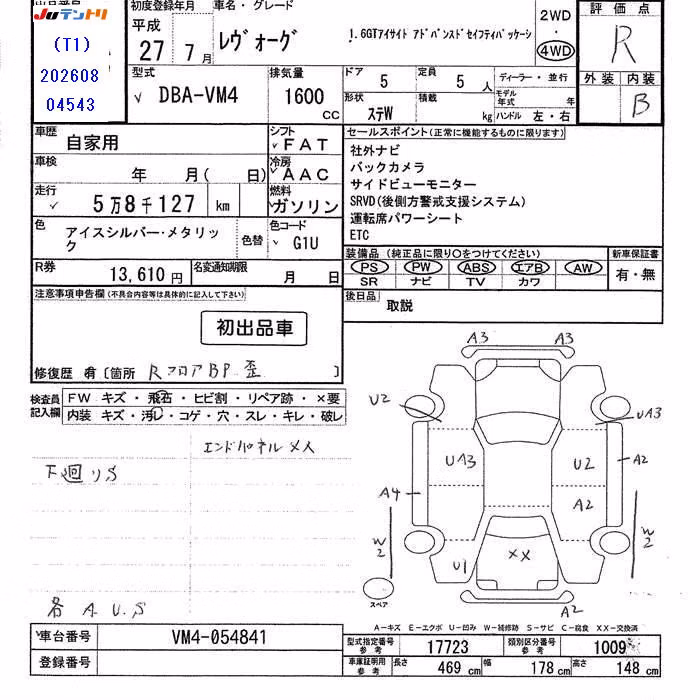 出品番号
JUテントリ
(T1)
202608
04543
初度登録年月
平成
27年7月
車名・グレード
レヴォーグ
1.6GTアイサイト アドバンスドセイフティパッケージ
2WD
・
4WD
評価点
R
外装 内装
B
型式
DBA-VM4
排気量
1600
CC
ドア
5
定員
5
人
形状
ステW
積載
kg
ディーラー・並行
モデル年式
年
ハンドル 左・右
車歴
自家用
シフト
FAT
車検
年 月( 日)
冷房
AAC
走行
5万8千127 km
燃料
ガソリン
色
アイスシルバー・メタリック
色替
色コード
G1U
R券
13,610円
名変通知期限
月 日
セールスポイント(正常に機能するものに限ります)
社外ナビ
バックカメラ
サイドビューモニター
SRVD(後側方警戒支援システム)
運転席パワーシート
ETC
装備品 (純正品に限り○をつけてください)
PS PW ABS エアB AW
SR ナビ TV カワ
新車保証書
有・無
後日品
取説
注意事項申告欄(不具合内容等は具体的に記入して下さい)
初出品車
修復歴 有 [箇所 Rフロア BP 歪 ]
検査員記入欄
FW キズ・飛石・ヒビ割・リペア跡・×要
内装 キズ・汚レ・コゲ・穴・スレ・キレ・破レ
エンドパネル メ人
下廻りS
各 A U.S
A3
A3
U2
UA3
UA3
U2
A2
A4
A2
W2
W2
U1
XX
A2
スペア
A-キズ E-エクボ U-凹み W-補修跡 S-サビ C-腐食 XX-交換済
車台番号
VM4-054841
登録番号
型式指定番号
参考
17723
類別区分番号
参考
1009
車庫証明用
参考
長さ
469 cm
幅
178 cm
高さ
148 cm